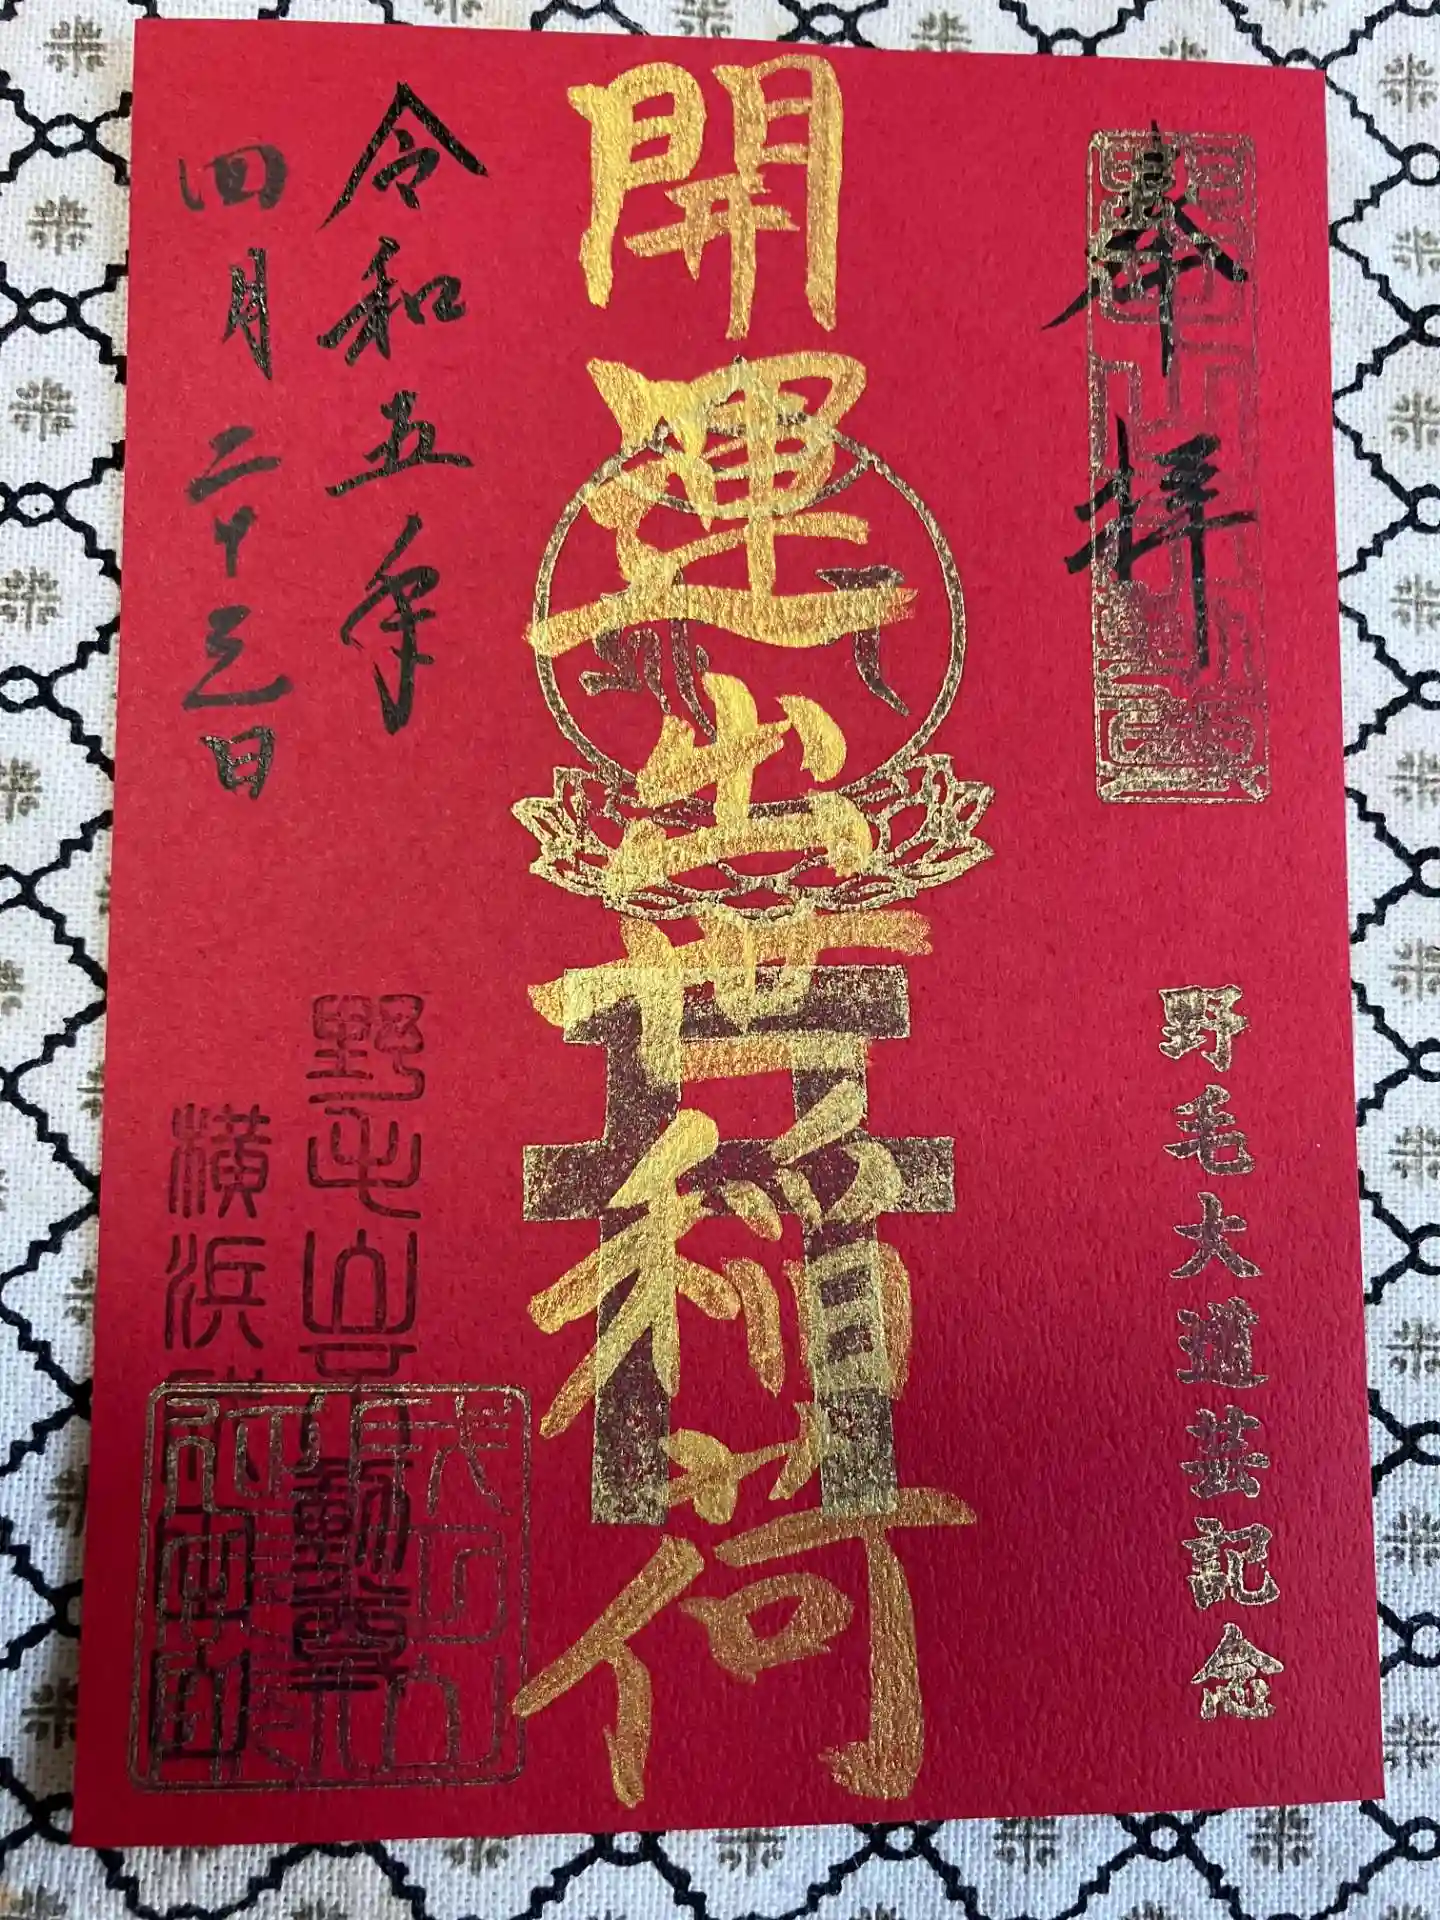 奉拝
野毛大道芸記念
開運出世稲荷
令和五年
四月二十三日
野毛山不動尊
横浜